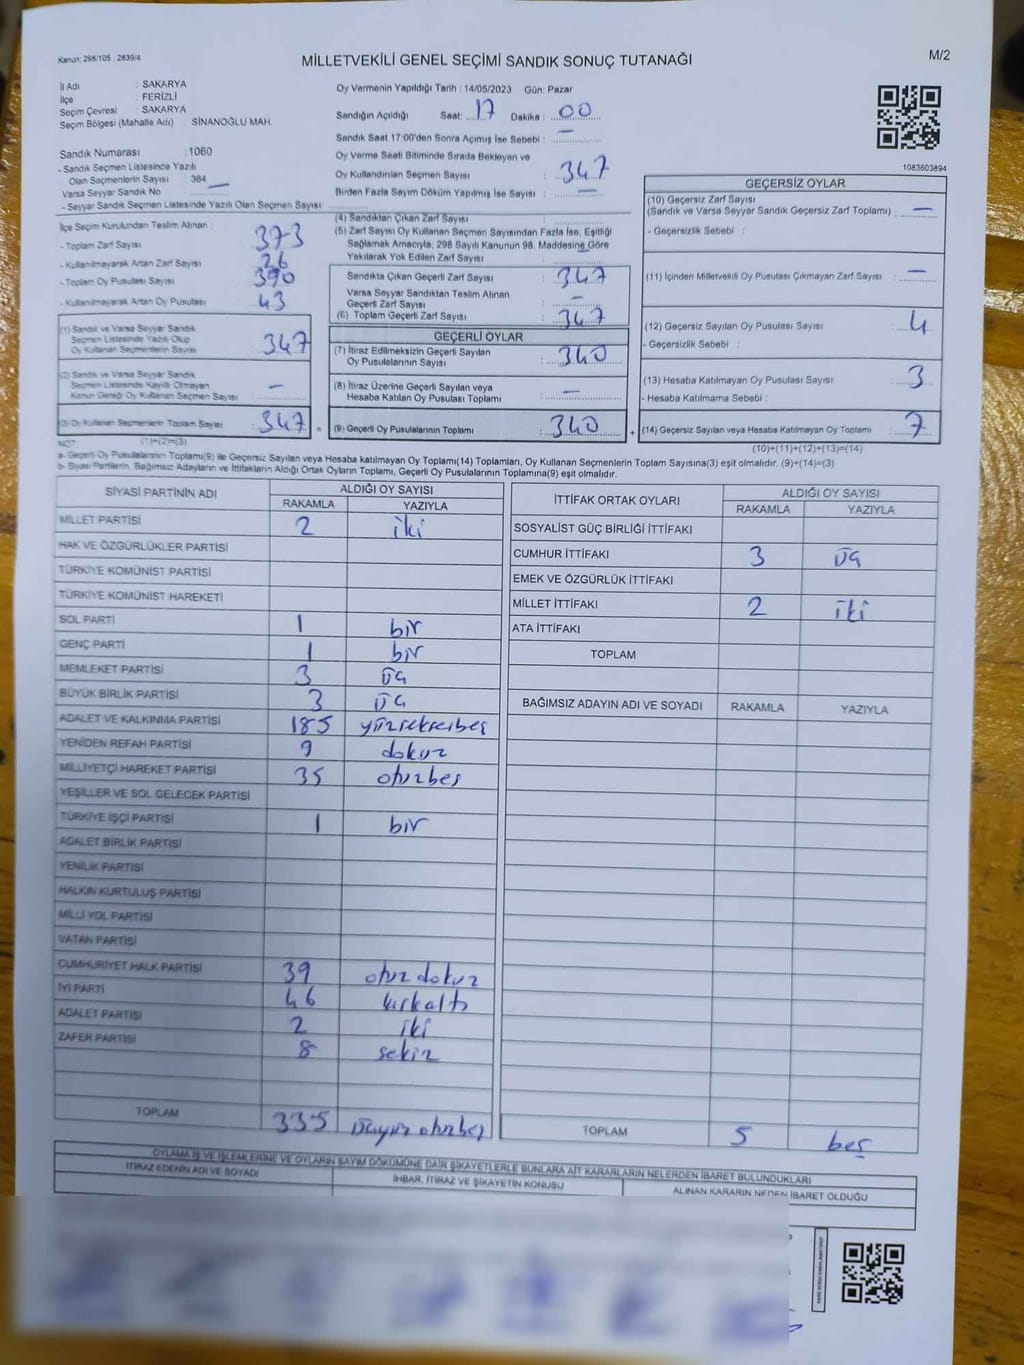 Kanun: 298/105 , 2839/4
MİLLETVEKİLİ GENEL SEÇİMİ SANDIK SONUÇ TUTANAĞI
M/2
İl Adı : SAKARYA
İlçe : FERİZLİ
Seçim Çevresi : SAKARYA
Seçim Bölgesi (Mahalle Adı) : SİNANOĞLU MAH.
Sandık Numarası : 1060
- Sandık Seçmen Listesinde Yazılı
Olan Seçmenlerin Sayısı 364
Varsa Seyyar Sandık No —
- Seyyar Sandık Seçmen Listesinde Yazılı Olan Seçmen Sayısı
Oy Vermenin Yapıldığı Tarih : 14/05/2023 Gün: Pazar
Sandığın Açıldığı Saat: 17 Dakika : 00
Sandık Saat 17:00'den Sonra Açımış İse Sebebi : —
Oy Verme Saati Bitiminde Sırada Bekleyen ve
Oy Kullandırılan Seçmen Sayısı : 347
Birden Fazla Sayım Döküm Yapılmış İse Sayısı : —
1083603894
İlçe Seçim Kurulundan Teslim Alınan :
- Toplam Zarf Sayısı 373
- Kullanılmayarak Artan Zarf Sayısı 26
- Toplam Oy Pusulası Sayısı 390
- Kullanılmayarak Artan Oy Pusulası 43
(1) Sandık ve Varsa Seyyar Sandık
Seçmen Listesinde Yazılı Olup
Oy Kullanan Seçmenlerin Sayısı : 347
(2) Sandık ve Varsa Seyyar Sandık
Seçmen Listesinde Kayıtlı Olmayan
Kanun Gereği Oy Kullanan Seçmen Sayısı : —
(3) Oy Kullanan Seçmenlerin Toplam Sayısı : 347 =
NOT: (1)+(2)=(3)
(4) Sandıktan Çıkan Zarf Sayısı :
(5) Zarf Sayısı Oy Kullanan Seçmen Sayısından Fazla İse, Eşitliği
Sağlamak Amacıyla, 298 Sayılı Kanunun 98. Maddesine Göre
Yakılarak Yok Edilen Zarf Sayısı :
Sandıkta Çıkan Geçerli Zarf Sayısı : 347
Varsa Seyyar Sandıktan Teslim Alınan
Geçerli Zarf Sayısı : —
(6) Toplam Geçerli Zarf Sayısı : 347
GEÇERLİ OYLAR
(7) İtiraz Edilmeksizin Geçerli Sayılan
Oy Pusulalarının Sayısı : 340
(8) İtiraz Üzerine Geçerli Sayılan veya
Hesaba Katılan Oy Pusulası Toplamı : —
(9) Geçerli Oy Pusulalarının Toplamı : 340 +
GEÇERSİZ OYLAR
(10) Geçersiz Zarf Sayısı
(Sandık ve Varsa Seyyar Sandık Geçersiz Zarf Toplamı) : —
- Geçersizlik Sebebi :
(11) İçinden Milletvekili Oy Pusulası Çıkmayan Zarf Sayısı : —
(12) Geçersiz Sayılan Oy Pusulası Sayısı : 4
- Geçersizlik Sebebi :
(13) Hesaba Katılmayan Oy Pusulası Sayısı : 3
- Hesaba Katılmama Sebebi :
(14) Geçersiz Sayılan veya Hesaba Katılmayan Oy Toplamı : 7
(10)+(11)+(12)+(13)=(14)
a- Geçerli Oy Pusulalarının Toplamı(9) ile Geçersiz Sayılan veya Hesaba katılmayan Oy Toplamı(14) Toplamları, Oy Kullanan Seçmenlerin Toplam Sayısına(3) eşit olmalıdır. (9)+(14)=(3)
b- Siyasi Partilerin, Bağımsız Adayların ve İttifakların Aldığı Ortak Oyların Toplamı, Geçerli Oy Pusulalarının Toplamına(9) eşit olmalıdır.
SİYASİ PARTİNİN ADI ALDIĞI OY SAYISI
RAKAMLA YAZIYLA
MİLLET PARTİSİ 2 iki
HAK VE ÖZGÜRLÜKLER PARTİSİ
TÜRKİYE KOMÜNİST PARTİSİ
TÜRKİYE KOMÜNİST HAREKETİ
SOL PARTİ 1 bir
GENÇ PARTİ 1 bir
MEMLEKET PARTİSİ 3 üç
BÜYÜK BİRLİK PARTİSİ 3 üç
ADALET VE KALKINMA PARTİSİ 185 yüzseksenbeş
YENİDEN REFAH PARTİSİ 9 dokuz
MİLLİYETÇİ HAREKET PARTİSİ 35 otuzbeş
YEŞİLLER VE SOL GELECEK PARTİSİ
TÜRKİYE İŞÇİ PARTİSİ 1 bir
ADALET BİRLİK PARTİSİ
YENİLİK PARTİSİ
HALKIN KURTULUŞ PARTİSİ
MİLLİ YOL PARTİSİ
VATAN PARTİSİ
CUMHURİYET HALK PARTİSİ 39 otuz dokuz
İYİ PARTİ 46 kırkaltı
ADALET PARTİSİ 2 iki
ZAFER PARTİSİ 8 sekiz
TOPLAM 335 üçyüz otuzbeş
İTTİFAK ORTAK OYLARI ALDIĞI OY SAYISI
RAKAMLA YAZIYLA
SOSYALİST GÜÇ BİRLİĞİ İTTİFAKI
CUMHUR İTTİFAKI 3 üç
EMEK VE ÖZGÜRLÜK İTTİFAKI
MİLLET İTTİFAKI 2 iki
ATA İTTİFAKI
TOPLAM
BAĞIMSIZ ADAYIN ADI VE SOYADI RAKAMLA YAZIYLA
TOPLAM 5 beş
OYLAMA İŞ VE İŞLEMLERİNE VE OYLARIN SAYIM DÖKÜMÜNE DAİR ŞİKAYETLERLE BUNLARA AİT KARARLARIN NELERDEN İBARET BULUNDUKLARI
İTİRAZ EDENİN ADI VE SOYADI İHBAR, İTİRAZ VE ŞİKAYETİN KONUSU ALINAN KARARIN NEDEN İBARET OLDUĞU